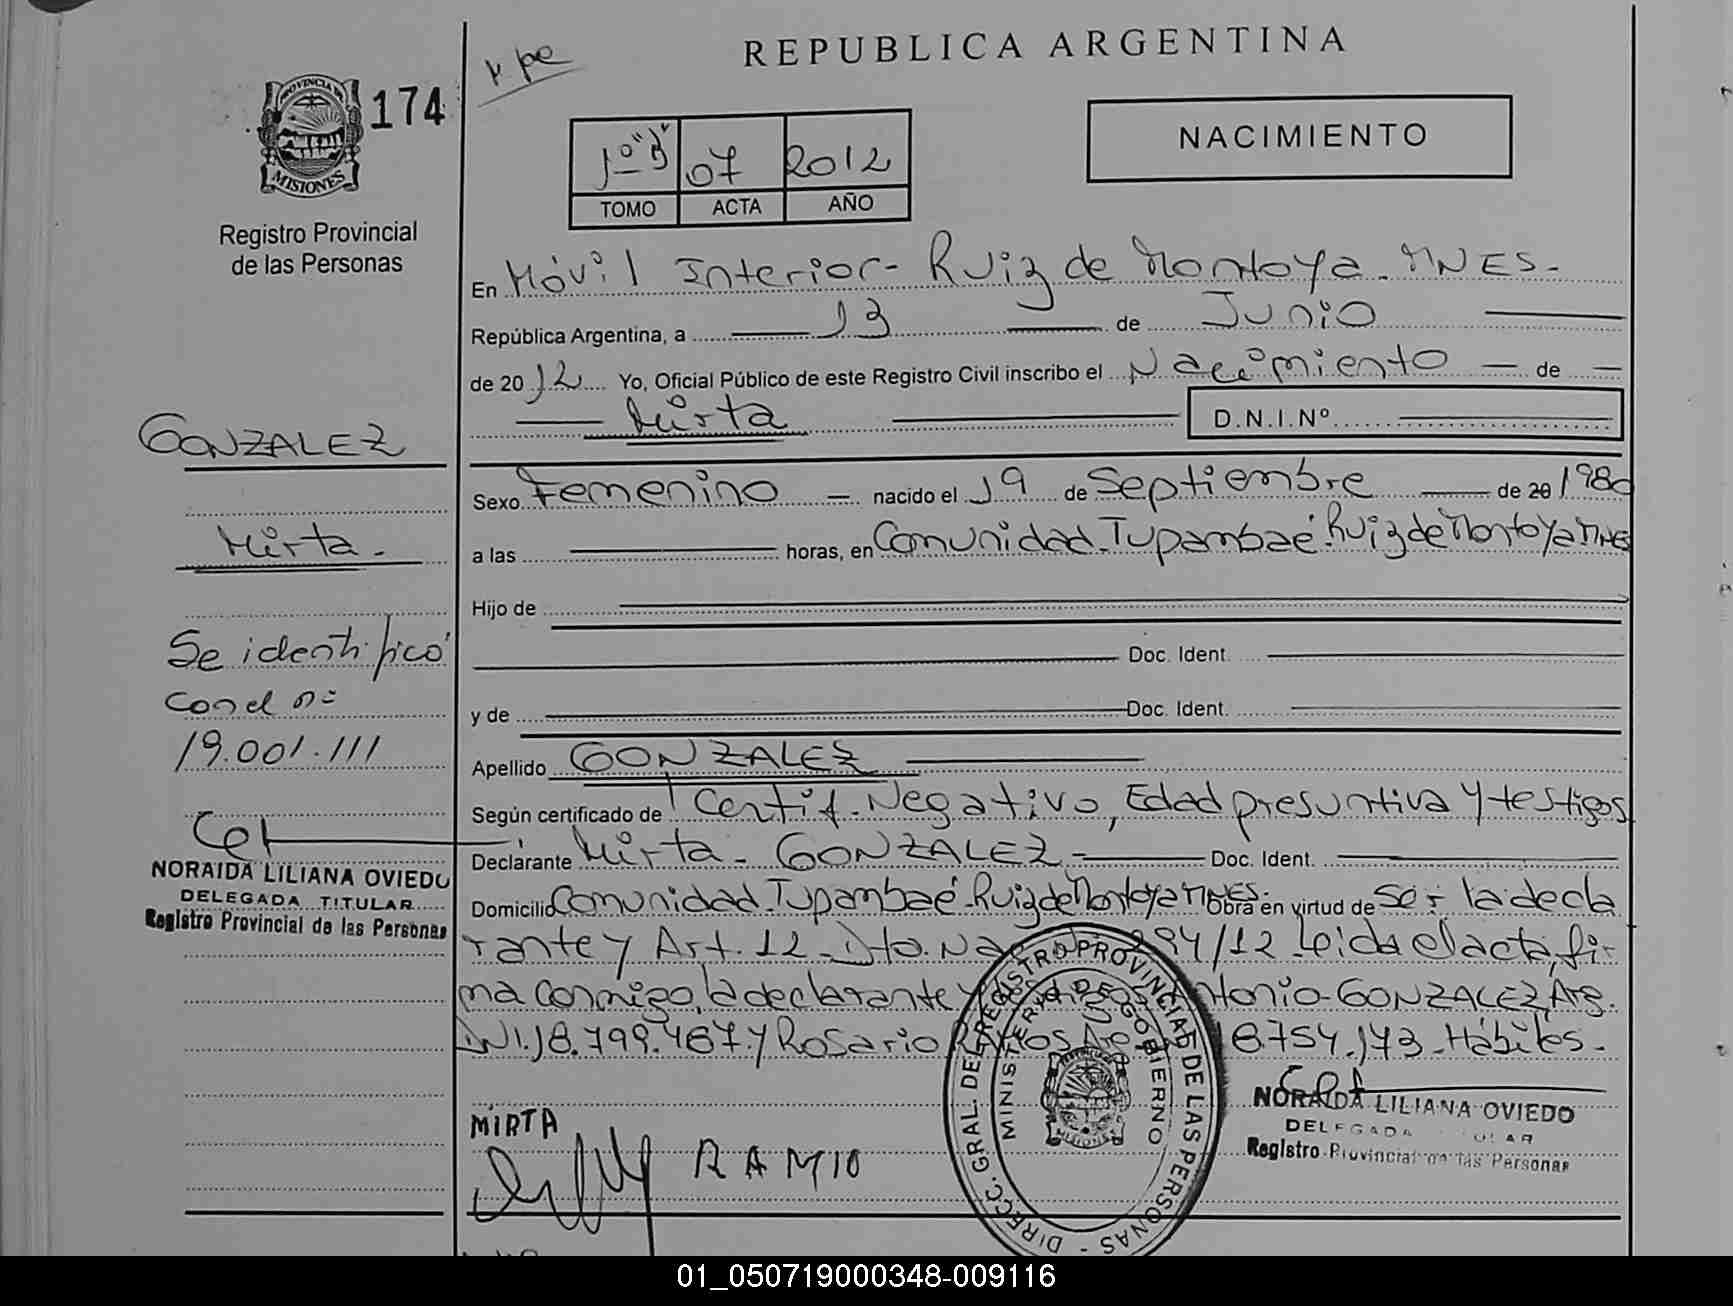 REPUBLICA ARGENTINA
PROVINCIA DE
MISIONES
174
Registro Provincial
de las Personas
07 2012
TOMO ACTA AÑO
NACIMIENTO
En Móvil Interior - Ruiz de Montoya. MNES.
República Argentina, a 13 de Junio
de 2012 Yo, Oficial Público de este Registro Civil inscribo el Nacimiento de
Mirta D.N.I.Nº
Sexo Femenino nacido el 19 de Septiembre de 20 1980
a las horas, en Comunidad Tupambaé Ruiz de Montoya MNES
Hijo de
Doc. Ident.
y de Doc. Ident.
Apellido GONZALEZ
Según certificado de Certif. Negativo, Edad presuntiva y testigos
Declarante Mirta - GONZALEZ - Doc. Ident.
Domicilio Comunidad Tupambaé Ruiz de Montoya MNES. Obra en virtud de Ser la decla
rante y Art. 12 - Dto. 294/12 Leida el acta, fir
ma conmigo, la declarante y Antonio - GONZALEZ, Arg.
DNI. 18.799.467. y Rosario 8.754.173 - Hábiles.
GONZALEZ
Mirta.
Se identificó
con el nº
19.001.111
NORAIDA LILIANA OVIEDO
DELEGADA TITULAR
Registro Provincial de las Personas
MIRTA
RAMIO
DIRECC. GRAL. DEL REGISTRO PROVINCIAL DE LAS PERSONAS
MINISTERIO DE GOBIERNO
MISIONES
NORAIDA LILIANA OVIEDO
DELEGADA TITULAR
Registro Provincial de las Personas
01_050719000348-009116